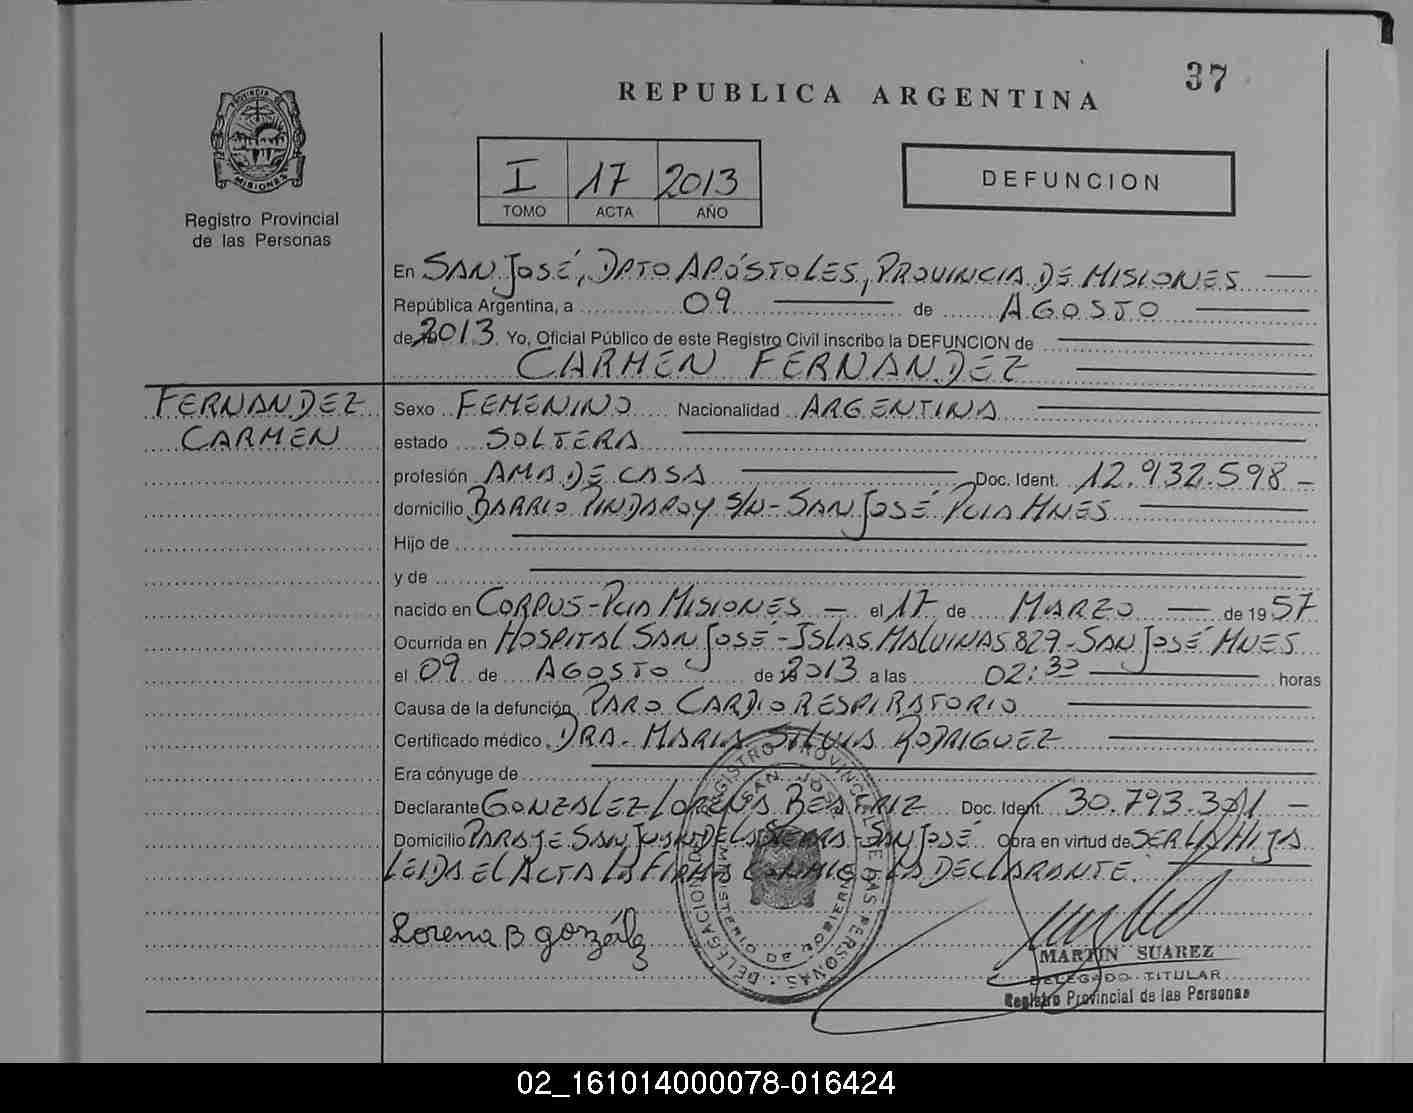 37
REPUBLICA ARGENTINA
PROVINCIA DE
MISIONES
Registro Provincial
de las Personas
I 17 2013
TOMO ACTA AÑO
DEFUNCION
En SAN JOSÉ, DPTO APÓSTOLES, PROVINCIA DE MISIONES
República Argentina, a 09 de AGOSTO
de 2013 Yo, Oficial Público de este Registro Civil inscribo la DEFUNCION de
CARMEN FERNANDEZ
FERNANDEZ
CARMEN
Sexo FEMENINO Nacionalidad ARGENTINA
estado SOLTERA
profesión AMA DE CASA Doc. Ident. 12.932.598
domicilio BARRIO PINDAROY S/N - SAN JOSÉ PCIA MNES
Hijo de
y de
nacido en CORPUS - PCIA MISIONES el 17 de MARZO de 1957
Ocurrida en HOSPITAL SAN JOSÉ - ISLAS MALVINAS 829 - SAN JOSÉ MNES
el 09 de AGOSTO de 2013 a las 02:30 horas
Causa de la defunción PARO CARDIO RESPIRATORIO
Certificado médico DRA. MARIA SILVIA RODRIGUEZ
Era cónyuge de
Declarante GONZALEZ LORENA BEATRIZ Doc. Ident. 30.793.3
Domicilio PARAJE SAN JUAN DE LA SIERRA - SAN JOSÉ Obra en virtud de SER LA HIJA
LEIDA EL ACTA LA FIRMA CONMIGO LA DECLARANTE.
Lorena B González
DELEGACION REGISTRO PROVINCIAL DE LAS PERSONAS
SAN JOSE
MINISTERIO DE GOBIERNO
MARTIN SUAREZ
DELEGADO TITULAR
Registro Provincial de las Personas
02_161014000078-016424